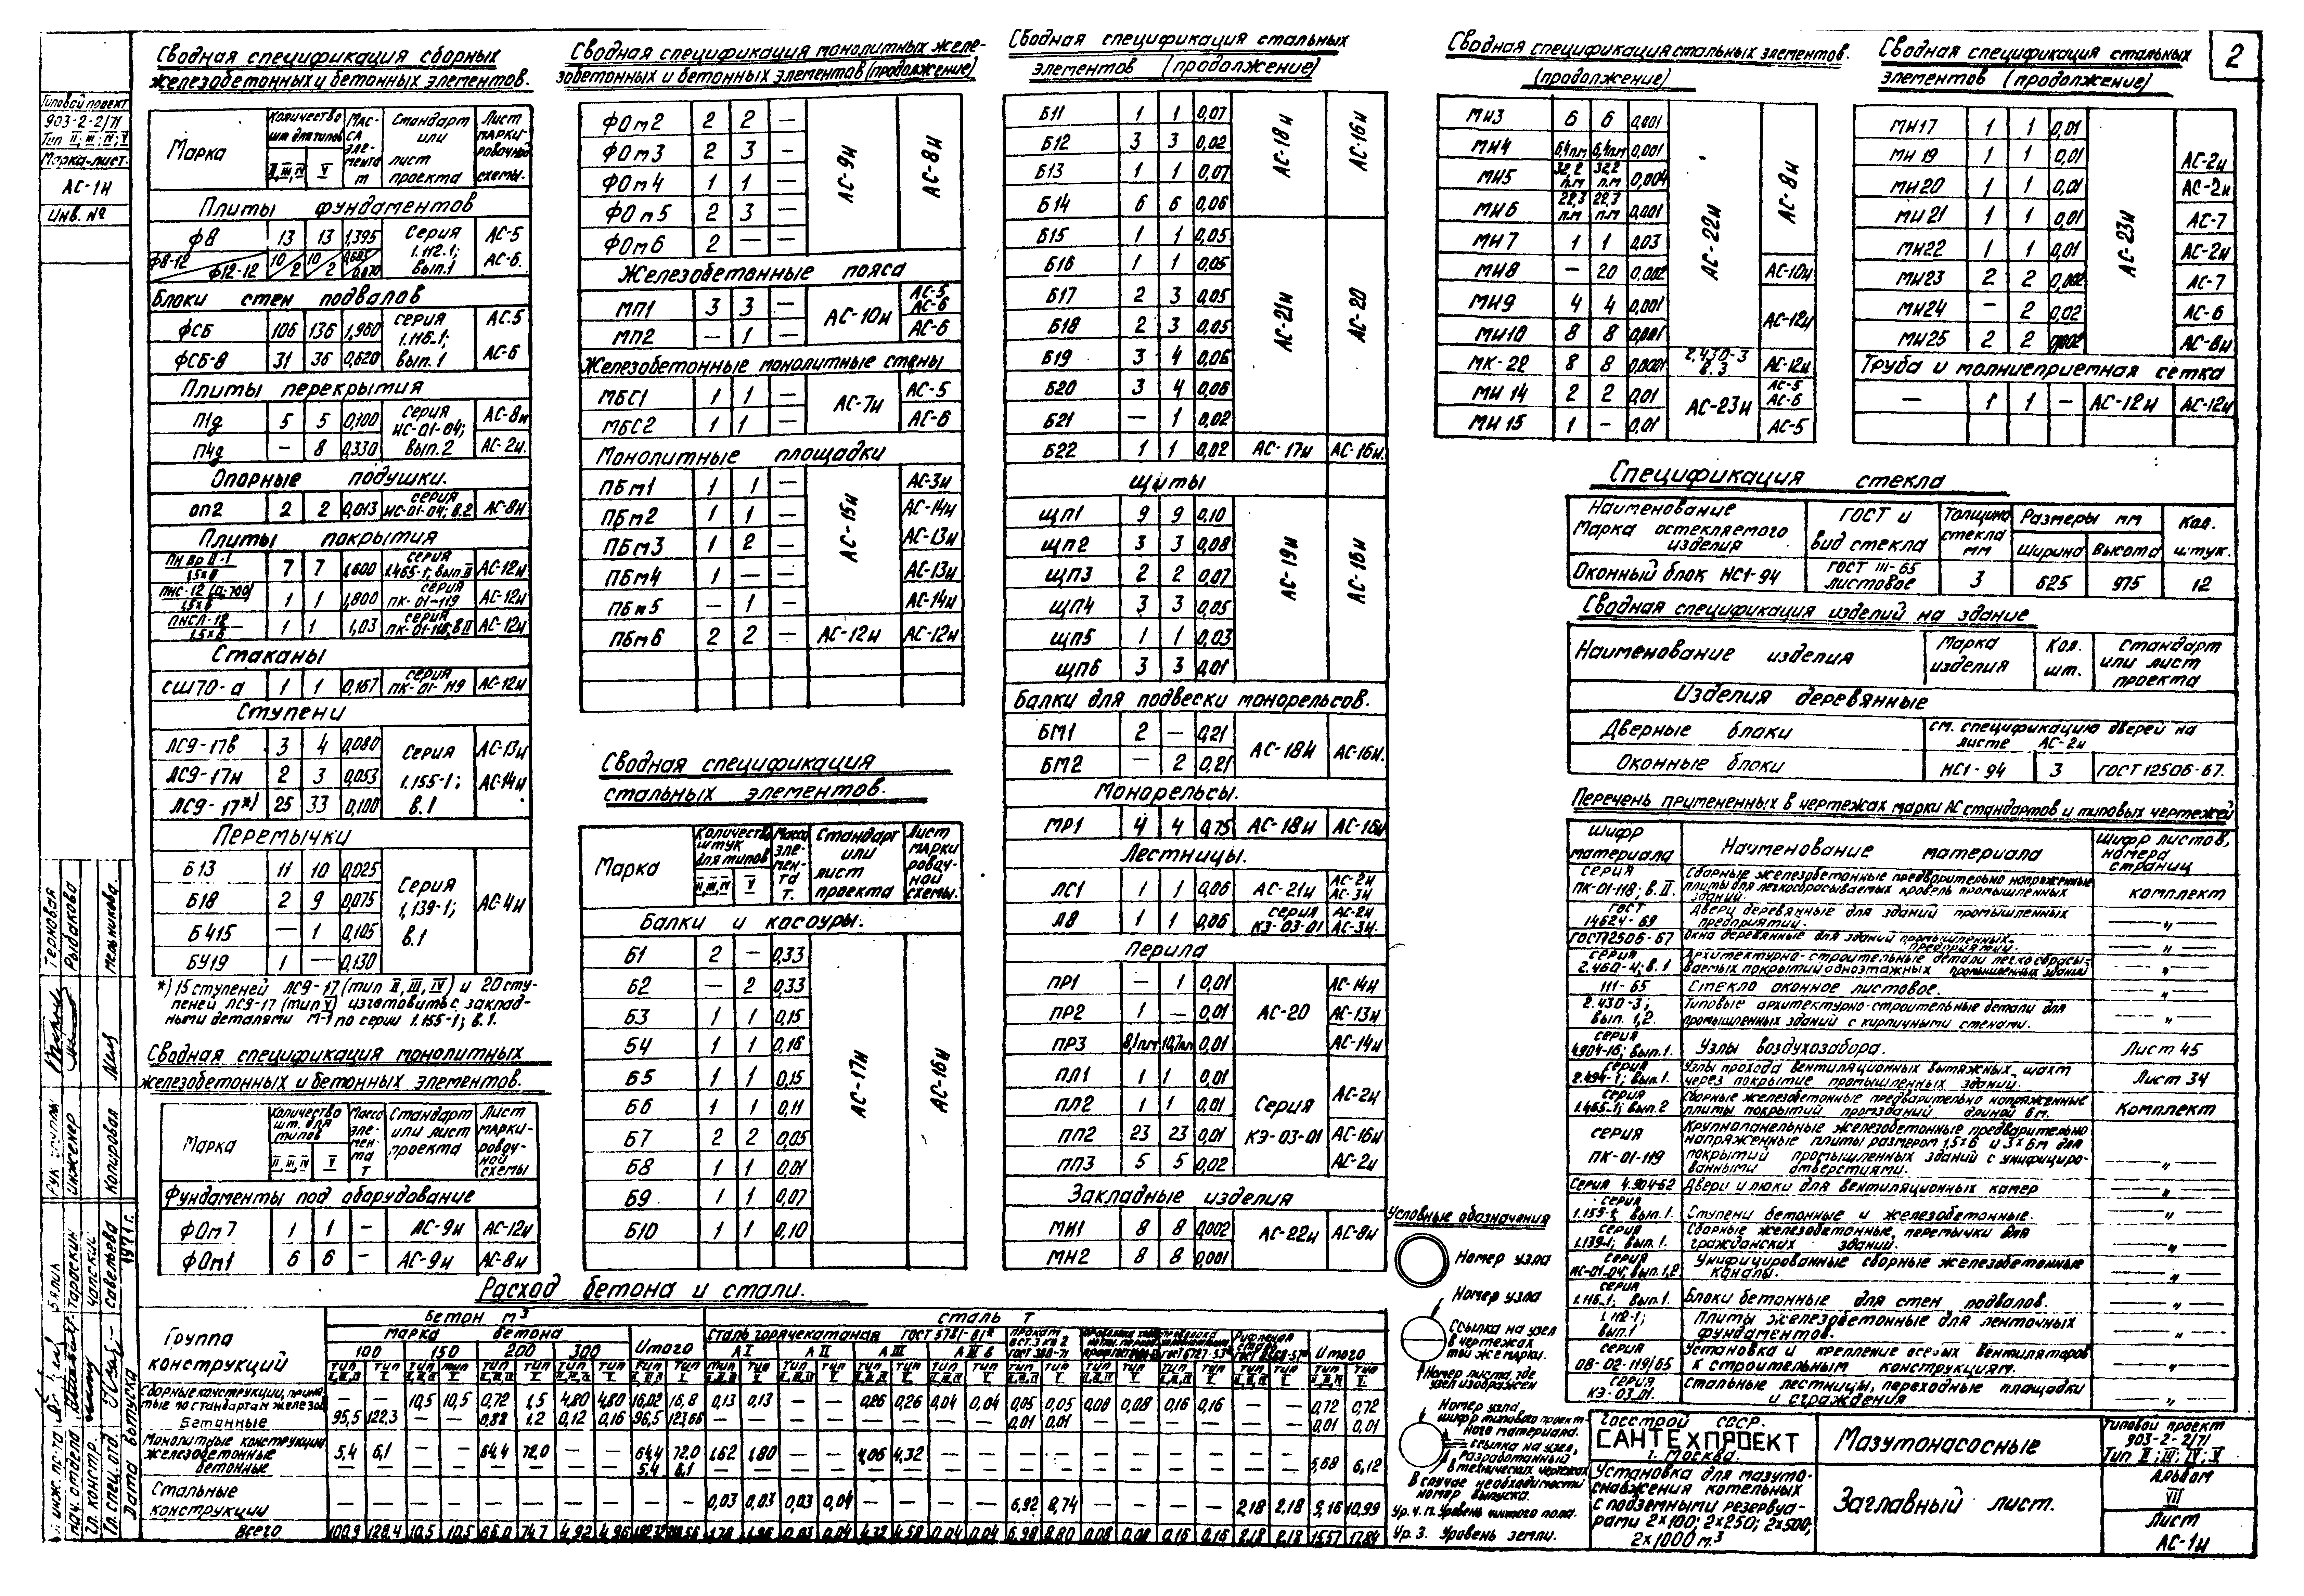 2
Типовой проект
903-2-2/71
Тип II; III; IV; V
Марка-лист.
АС-1И
Инв. №
Сводная спецификация сборных
железобетонных и бетонных элементов.
Марка
Количество шт для типов
II, III, IV
V
Масса элемента т
Стандарт или лист проекта
Лист маркировочной схемы.
Плиты фундаментов
Ф8 13 13 1,395 Серия 1.112.1; вып.1 АС-5
Ф8-12 / Ф12-12 10/2 10/2 АС-6.
Блоки стен подвалов
ФС6 106 136 1,960 серия 1.116.1; вып.1 АС.5
ФС6-8 31 36 0,620 АС-6
Плиты перекрытия
П1д 5 5 0,100 серия ИС-01-04; вып.2 АС-8И
П4д — 8 0,330 АС-2И.
Опорные подушки.
ОП2 2 2 0,013 серия ИС-01-04; В.2 АС-8И
Плиты покрытия
7 7 1,600 серия 1.465-1; вып.II АС-12И
1 1 1,800 серия ПК-01-119 АС-12И
ПНСЛ-12 1,5х6 1 1 1,03 серия ПК-01-118; В II АС-12И
Стаканы
СШ70-а 1 1 0,167 серия ПК-01-119 АС-12И
Ступени
ЛС9-17в 3 4 0,080 Серия 1.155-1; в.1 АС-13И
ЛС9-17н 2 3 0,053 АС-14И
ЛС9-17*) 25 33 0,100
Перемычки
Б13 11 10 0,025 Серия 1,139-1; в.1 АС-4И
Б18 2 9 0,075
Б415 — 1 0,105
БУ19 1 — 0,130
*) 15 ступеней ЛС9-17 (тип II, III, IV) и 20 сту-
пеней ЛС9-17 (тип V) изготовить с заклад-
ными деталями М-1 по серии 1.155-1; в.1.
Сводная спецификация монолитных
железобетонных и бетонных элементов.
Марка
Количество шт. для типов
II, III, IV
V
Масса элемента т
Стандарт или лист проекта
Лист маркировочной схемы
Фундаменты под оборудование
ФОм7 1 1 — АС-9И АС-12И
ФОм1 6 6 — АС-9И АС-8И
Сводная спецификация монолитных желе-
зобетонных и бетонных элементов (продолжение)
ФОм2 2 2 — АС-9И АС-8И
ФОм3 2 3 —
ФОм4 1 1 —
ФОм5 2 3 —
ФОм6 2 — —
Железобетонные пояса
МП1 3 3 — АС-10И АС-5 АС-6
МП2 — 1 — АС-6
Железобетонные монолитные стены
МБС1 1 1 — АС-7И АС-5
МБС2 1 1 — АС-6
Монолитные площадки
ПБм1 1 1 — АС-15И АС-3И
ПБм2 1 1 — АС-14И
ПБм3 1 2 — АС-13И
ПБм4 1 — — АС-13И
ПБм5 — 1 — АС-14И
ПБм6 2 2 — АС-12И АС-12И
Сводная спецификация
стальных элементов.
Марка
Количество штук для типов
II, III, IV
V
Масса элемента т.
Стандарт или лист проекта
Лист маркировочной схемы.
Балки и косоуры.
Б1 2 — 0,33 АС-17И АС-16И
Б2 — 2 0,33
Б3 1 1 0,15
Б4 1 1 0,16
Б5 1 1 0,15
Б6 1 1 0,11
Б7 2 2 0,05
Б8 1 1 0,01
Б9 1 1 0,07
Б10 1 1 0,10
Сводная спецификация стальных
элементов (продолжение)
Б11 1 1 0,07 АС-18И АС-16И
Б12 3 3 0,02
Б13 1 1 0,07
Б14 6 6 0,06
Б15 1 1 0,05 АС-21И АС-20
Б16 1 1 0,05
Б17 2 3 0,05
Б18 2 3 0,05
Б19 3 4 0,06
Б20 3 4 0,06
Б21 — 1 0,02
Б22 1 1 0,02 АС-17И АС-16И.
Щиты
ЩП1 9 9 0,10 АС-19И АС-16И
ЩП2 3 3 0,08
ЩП3 2 2 0,07
ЩП4 3 3 0,05
ЩП5 1 1 0,03
ЩП6 3 3 0,01
Балки для подвески монорельсов.
БМ1 2 — 0,21 АС-18И АС-16И.
БМ2 — 2 0,21
Монорельсы.
МР1 4 4 0,75 АС-18И АС-16И
Лестницы.
ЛС1 1 1 0,06 АС-21И АС-2И АС-3И
Л8 1 1 0,06 серия КЭ-03-01 АС-2И АС-3И.
Перила
ПР1 — 1 0,01 АС-20 АС-14И
ПР2 1 — 0,01 АС-13И
ПР3 8,1пм 10,7пм 0,01 АС-14И
ПЛ1 1 1 0,01 Серия КЭ-03-01 АС-2И
ПЛ2 1 1 0,01
ПП2 23 23 0,01 АС-16И
ПП3 5 5 0,02 АС-2И
Закладные изделия
МН1 8 8 0,002 АС-22И АС-8И
МН2 8 8 0,001
Сводная спецификация стальных элементов.
(продолжение)
МН3 6 6 0,001 АС-22И АС-8И
МН4 6,4п.м 6,4п.м 0,001
МН5 32,2 п.м 32,2 п.м 0,004
МН6 22,3 п.м 22,3 п.м 0,001
МН7 1 1 0,03
МН8 — 20 0,002 АС-10И
МН9 4 4 0,001 АС-12И
МН10 8 8 0,001
МК-22 8 8 0,0001 2.430-3 В.3 АС-12И
МН14 2 2 0,01 АС-23И АС-5 АС-6
МН15 1 — 0,01 АС-5
Сводная спецификация стальных
элементов (продолжение)
МН17 1 1 0,01 АС-23И
МН19 1 1 0,01 АС-2И
МН20 1 1 0,01 АС-2И
МН21 1 1 0,01 АС-7
МН22 1 1 0,01 АС-2И
МН23 2 2 0,002 АС-7
МН24 — 2 0,02 АС-6
МН25 2 2 0,002 АС-8И
Труба и молниеприемная сетка
— 1 1 — АС-12И АС-12И
Спецификация стекла
Наименование Марка остекляемого изделия
ГОСТ и вид стекла
Толщина стекла мм
Размеры мм
Ширина
Высота
Кол. штук.
Оконный блок НС1-94 ГОСТ 111-65 листовое 3 625 975 12
Сводная спецификация изделий на здание
Наименование изделия
Марка изделия
Кол. шт.
Стандарт или лист проекта
Изделия деревянные
Дверные блоки см. спецификацию дверей на листе АС-2И
Оконные блоки НС1-94 3 ГОСТ 12506-67.
Перечень примененных в чертежах марки АС стандартов и типовых чертежей
Шифр материала
Наименование материала
Шифр листов, номера страниц
серия ПК-01-118; в. II. Сборные железобетонные предварительно напряженные плиты для легкосбрасываемых кровель промышленных зданий. комплект
ГОСТ 14624-69 Двери деревянные для зданий промышленных предприятий. — " —
ГОСТ 12506-67 Окна деревянные для зданий промышленных предприятий. — " —
серия 2.460-4; в.1 Архитектурно-строительные детали легкосбрасываемых покрытий одноэтажных промышленных зданий — " —
111-65 Стекло оконное листовое. — " —
2.430-3; вып. 1,2. Типовые архитектурно-строительные детали для промышленных зданий с кирпичными стенами. — " —
серия 4.904-16; вып.1. Узлы воздухозабора. Лист 45
серия 2.494-1; вып.1. Узлы прохода вентиляционных вытяжных шахт через покрытие промышленных зданий. Лист 34
серия 1.465-1; вып.2 Сборные железобетонные предварительно напряженные плиты покрытий промзданий длиной 6м. Комплект
серия ПК-01-119 Крупнопанельные железобетонные предварительно напряженные плиты размером 1,5×6 и 3×6м для покрытий промышленных зданий с унифицированными отверстиями. — " —
Серия 4.904-62 Двери и люки для вентиляционных камер — " —
серия 1.155-1; вып.1. Ступени бетонные и железобетонные. — " —
серия 1.139-1; вып.1. Сборные железобетонные, перемычки для гражданских зданий. — " —
серия ИС-01-04; вып.1,2 Унифицированные сборные железобетонные каналы. — " —
серия 1.116-1; вып.1. Блоки бетонные для стен подвалов. — " —
1.112-1; вып.1 Плиты железобетонные для ленточных фундаментов. — " —
серия ОВ-02-119/65 Установка и крепление осевых вентиляторов к строительным конструкциям. — " —
серия КЭ-03.01. Стальные лестницы, переходные площадки и ограждения — " —
Условные обозначения
Номер узла
Номер узла
Ссылка на узел
в чертежах
той же марки.
Номер листа, где
узел изображен
Номер узла
шифр типового проект-
ного материала.
ссылка на узел,
разработанный
в технических чертежах
В случае необходимости
номер выпуска.
Ур.ч.п. Уровень чистого пола.
Ур.з. Уровень земли.
Расход бетона и стали.
Группа конструкций
Бетон м3
марка бетона
100 150 200 300
Итого
Сталь т
Сталь горячекатаная ГОСТ 5781-61*
А I А II А III А III в
Прокат
Итого
Сборные конструкции, приня-
тые по стандартам железоб. — — 10,5 10,5 0,72 1,5 4,80 4,80 16,02 16,8 0,13 0,13 — — 0,26 0,26 0,04 0,04 0,05 0,05 0,08 0,08 0,16 0,16 — — 0,72 0,72
Бетонные 95,5 122,3 — — 0,88 1.2 0,12 0,16 96,5 123,66 0,01 0,01 0,01 0,01
Монолитные конструкции
железобетонные 5,4 6,1 — — 64,4 72,0 — — 64,4 72,0 1,62 1,80 — — 4,06 4,32 — — 5,68 6,12
бетонные 5,4 6,1
Стальные
конструкции 0,03 0,03 0,03 0,04 — — — — 6,92 8,74 — — — — 2,18 2,18 9,16 10,99
Всего 100,9 128,4 10,5 10,5 66,0 74,7 4,92 4,96 1,78 1,96 0,03 0,04 4,32 4,58 0,04 0,04 6,98 8,80 0,08 0,08 0,16 0,16 2,18 2,18 15,57 17,84
Госстрой СССР.
САНТЕХПРОЕКТ
г. Москва.
Установка для мазуто-
снабжения котельных
с подземными резервуа-
рами 2×100; 2×250; 2×500;
2×1000 м3
Мазутонасосные
Заглавный лист.
Типовой проект
903-2-2/71
Тип II; III; IV; V
Альбом
VII
Лист
АС-1И
Нач. отдела
Гл. констр.
Гл. спец. отд.
Дата выпуска
1971 г.
Тараскин
Чапский
Савельева
Рук. группы
Инженер
Копировал
Терновая
Рыбакова
Мельникова.